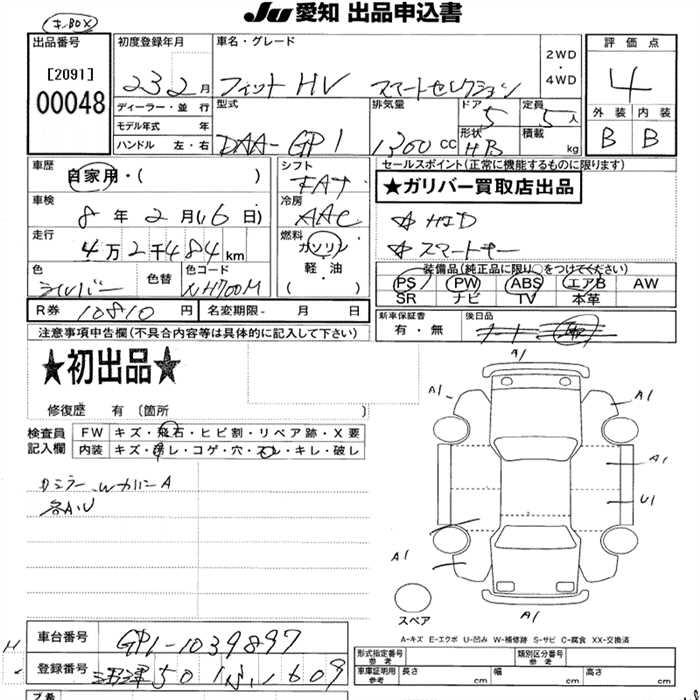 JU 愛知 出品申込書
キーBOX
出品番号
[2091]
00048
初度登録年月
23 2 月
車名・グレード
フィット HV スマートセレクション
2WD
・
4WD
評価点
4
外装 内装
B B
ディーラー・並行
モデル年式 年
ハンドル 左・右
型式
DAA-GP1
排気量
1300 CC
ドア
5
形状
HB
定員
5人
積載
kg
車歴
自家用・( )
車検
8年2月(16日)
走行
4万2千484km
色
シルバー
色替
色コード
NH700M
シフト
FAT
冷房
AAC
燃料
ガソリン
・
軽・油
( )
セールスポイント(正常に機能するものに限ります)
★ガリバー買取店出品
☆ HID
☆ スマートキー
装備品(純正品に限り○をつけてください)
PS PW ABS エアB AW
SR ナビ TV 本革
R券 10810 円
名変期限- 月 日
新車保証書
有・無
後日品
注意事項申告欄(不具合内容等は具体的に記入して下さい)
★初出品★
修復歴 有 〔箇所 〕
検査員
記入欄
FW キズ・飛石・ヒビ割・リペア跡・X要
内装 キズ・汚レ・コゲ・穴・スレ・キレ・破レ
カミラー、Wカバー A
各A、U
A1
A1
A1
A1
U1
A1
A1
スペア
A-キズ E-エクボ U-凹み W-補修跡 S-サビ C-腐食 XX-交換済
車台番号 GP1-1039897
登録番号 沼津 501 ふ 1609
形式指定番号
参考
類別区分番号
参考
車庫証明用
参考
長さ cm 幅 cm 高さ cm